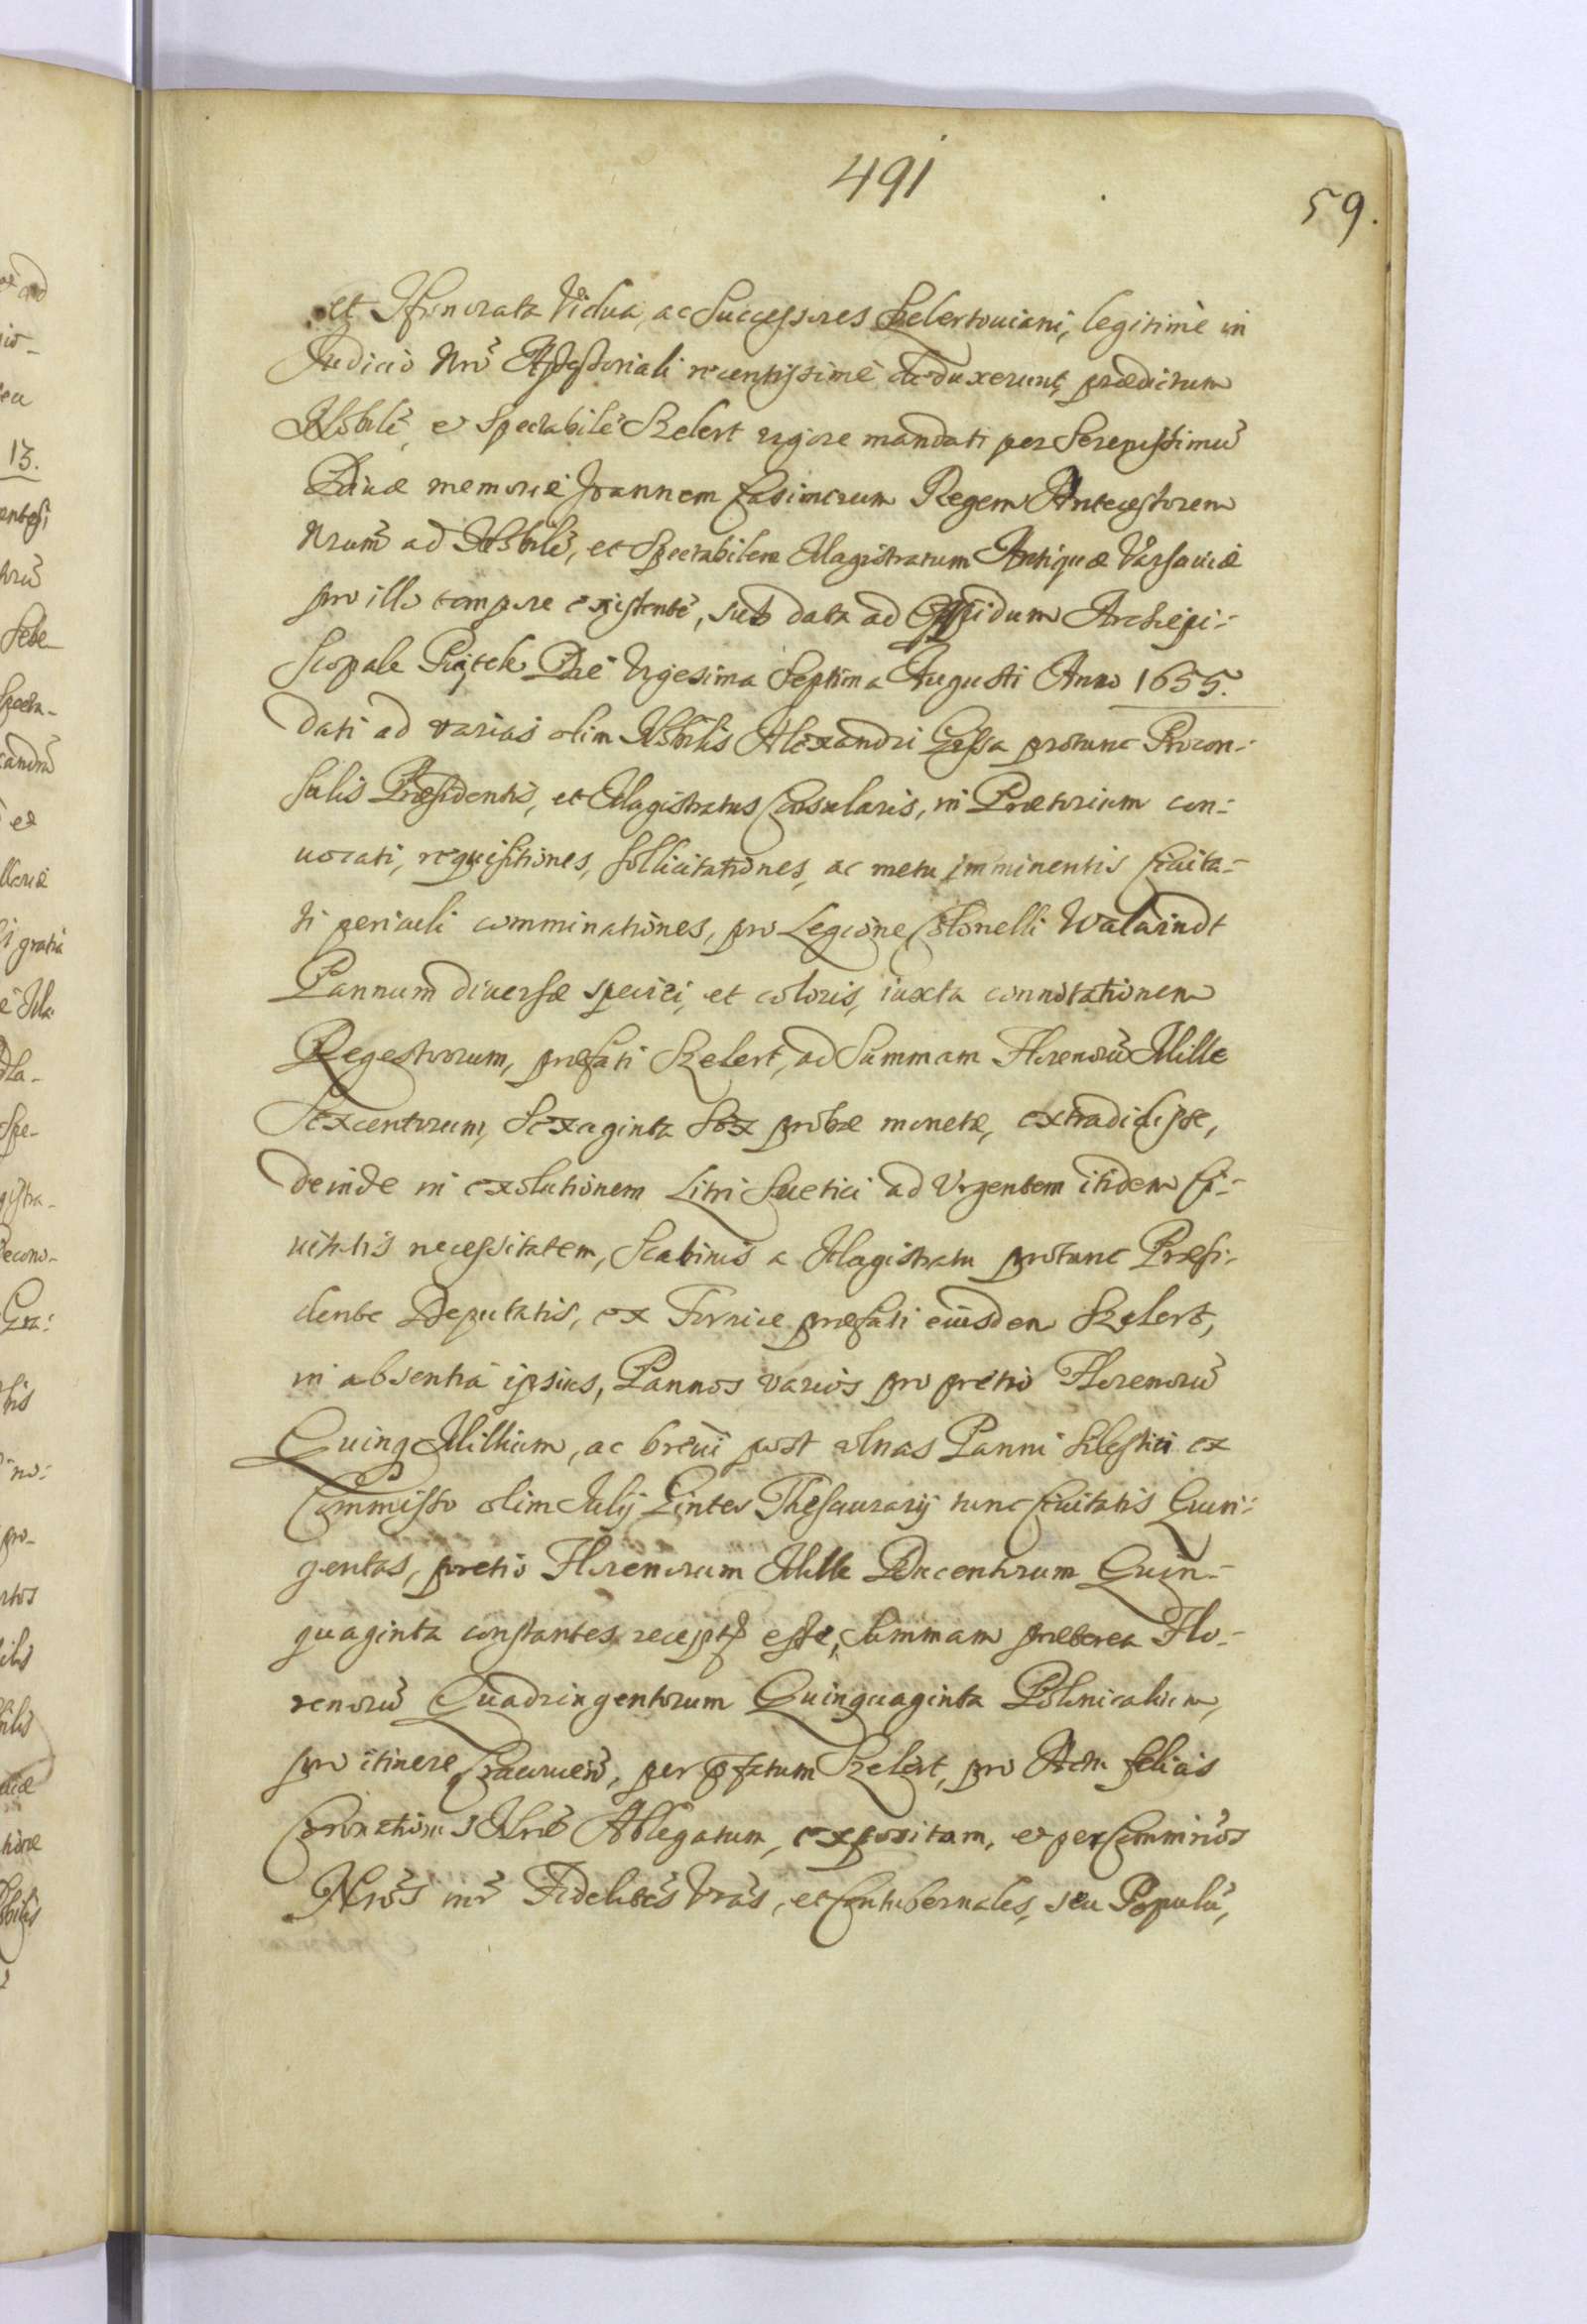 491
59.
et Honorata Vidua, ac Successores Szelertouiani, legitimè in
Judicio Nrõ Assessoriali recentissimè deduxerunt, præditum
Nobilẽ, et Spectabilẽ Szelert vigore mandati per Serenissimũ
Diuæ memoriæ Joannem Casimirum Regem Antecessorem
Nrum̃ ad Nobilẽ, et Spectabilem Magistratum Antiquæ Varsauiæ
pro illo tempore existentẽ, sub data ad Oppidum Archiepi-
scopale Piątek Die Vigesima Septima Augusti Anno 1655.
dati ad varias olim Nobilis Alexandri Gissa protunc Procon-
sulis Præsidentis, et Magistratus Consularis, in Prætorium con-
uocati, requisitiones, sollicitationes, ac metu imminentis Ciuita-
ti periculi comminationes, pro Legione Colonelli Walaindt
Pannum diuersæ speciei, et coloris, iuxta connotationem
Regestrorum, præfati Szelert, ad Summam Florenorũ Mille
Sexcentorum, Sexaginta Sex probæ monetæ, extradidisse,
deinde in exolutionem Litri Suetici ad Vrgentem itidem Ci-
uitatis necessitatem, Scabinis a Magistratu protunc Præsi-
dente Deputatis, ex Fornice præfati eiusdem Szelert,
in absentia ipsius, Pannos varios pro pretio Florenorũ
Quinq Millium, ac breui post vlnas Panni Silesitici ex
Commisso olim Julij Ginter Thesaurarij tunc Ciuitatis Quin-
gentas, pretio Florenorum Mille Ducentorum Quin-
quaginta constantes receptas esse, Summam præterea Flo-
renorũ Quadringentorum Quinquaginta Polonicalium,
pro itinere Cracouien̄, per pfatum Szelert, pro Actu felicis
Coronationis Nrẽ Ablegatum, expositam, et per
Nrõs inr̃ Fidelitẽs Vrãs, et Contubernales, seu Populũ,